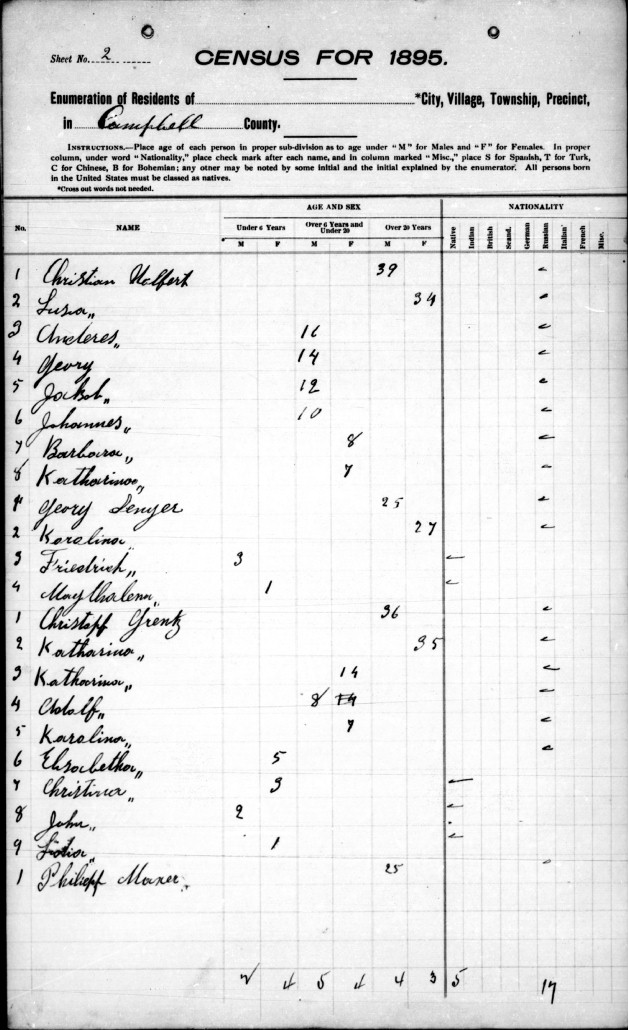 Sheet No. 2
CENSUS FOR 1895.
Enumeration of Residents of *City, Village, Township, Precinct,
in Campbell County.
INSTRUCTIONS.—Place age of each person in proper sub-division as to age under "M" for Males and "F" for Females. In proper
column, under word "Nationality," place check mark after each name, and in column marked "Misc.," place S for Spanish, T for Turk,
C for Chinese, B for Bohemian; any other may be noted by some initial and the initial explained by the enumerator. All persons born
in the United States must be classed as natives.
*Cross out words not needed.
AGE AND SEX NATIONALITY
No. NAME Under 6 Years Over 6 Years and Under 20 Over 20 Years Native Indian British Scand. German Russian Italian French Misc.
M F M F M F
1 Christian 39
2 34
3 Anderes " 16
4 Georg 14
5 Jakob " 12
6 Johannes " 10
7 Barbara " 8
8 Katharina " 7
1 Georg 25
2 Karolina 27
3 Friedrich " 3
4 Magthalena " 1
1 Christoff Grentz 36
2 Katharina " 35
3 Katharina " 14
4 Adolf " 8 14
5 Karolina " 7
6 Elisabetha " 5
7 Christina " 3
8 John " 2
9 1
1 Philiepf 25
2 4 5 4 4 3 5 17